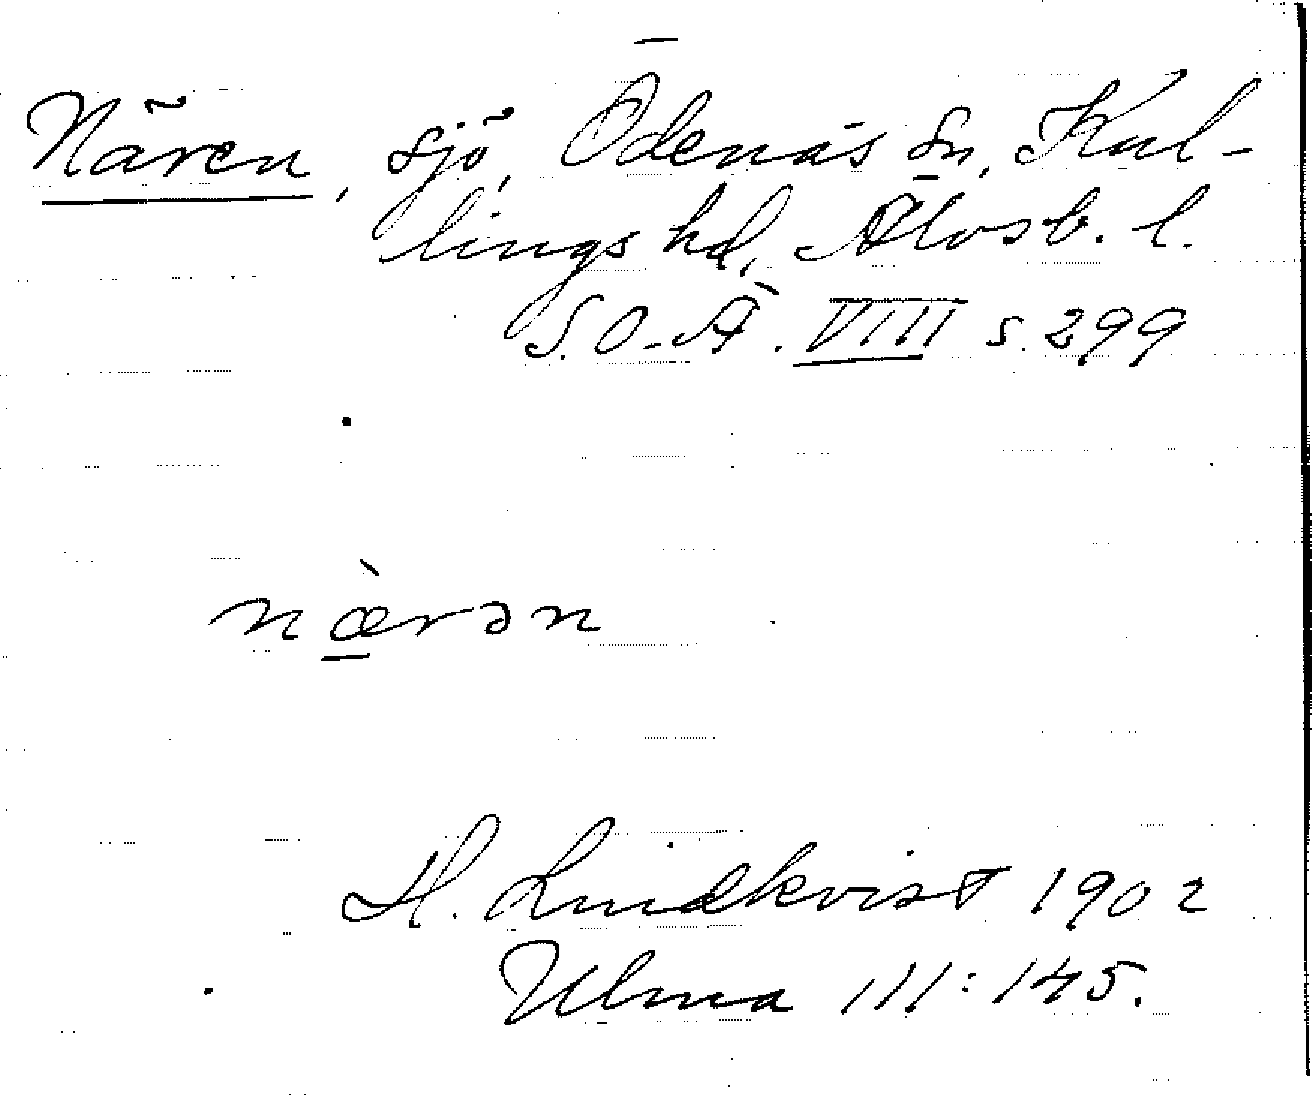 Nären, sjö, Ödenäs sn, Kul-
lings hd, Älvsb. l.
S.O.Ä. VIII s. 299
næ̀rən
H. Lindkvist 1902
Ulma 111:145.